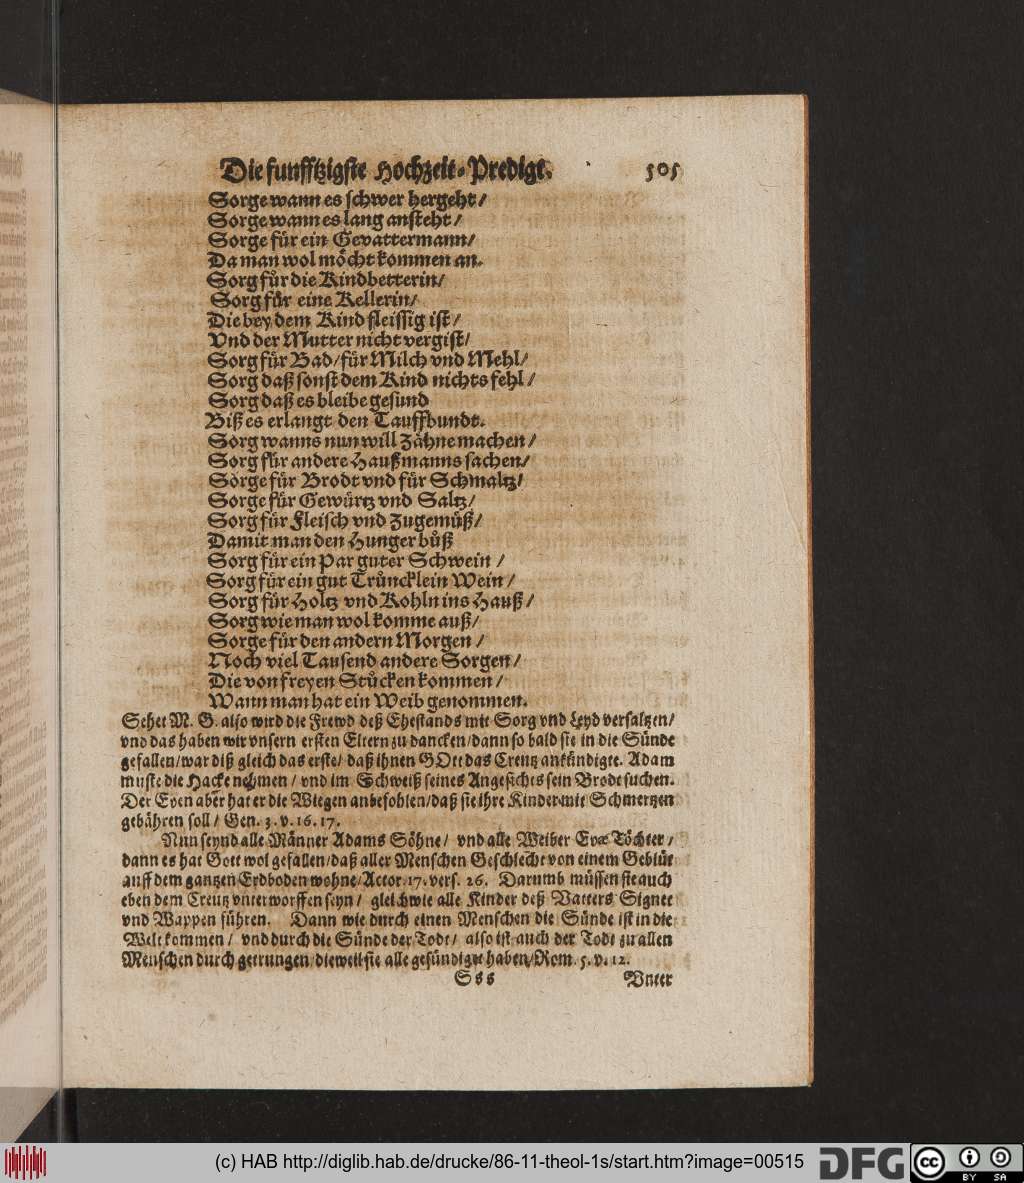 Die funfftzigste Hochzeit-Predigt. 505
Sorge wann es schwer hergeht/
Sorge wann es lang ansteht/
Sorge für ein Gevattermann/
Da man wol möcht kommen an.
Sorg für die Kindbetterin/
Sorg für eine Kellerin/
Die bey dem Kind fleissig ist/
Vnd der Mutter nicht vergist/
Sorg für Bad/für Milch vnd Mehl/
Sorg daß sonst dem Kind nichts fehl/
Sorg daß es bleibe gesund
Biß es erlangt den Tauffbundt.
Sorg wanns nun will Zähne machen/
Sorg für andere Haußmanns sachen/
Sorge für Brodt vnd für Schmaltz/
Sorge für Gewürtz vnd Saltz/
Sorg für Fleisch vnd Zugemüß/
Damit man den Hunger büß
Sorg für ein Par guter Schwein/
Sorg für ein gut Trüncklein Wein/
Sorg für Holtz vnd Kohln ins Hauß/
Sorg wie man wol komme auß/
Sorge für den andern Morgen/
Noch viel Tausend andere Sorgen/
Die von freyen Stücken kommen/
Wann man hat ein Weib genommen.
Sehet M. G. also wird die Frewd deß Ehestands mit Sorg vnd Leyd versaltzen/
vnd das haben wir vnsern ersten Eltern zu dancken/dann so bald sie in die Sünde
gefallen/war diß gleich das erste/daß ihnen GOtt das Creutz ankündigte. Adam
muste die Hacke nehmen/vnd im Schweiß seines Angesichts sein Brodt suchen.
Der Even aber hat er die Wiegen anbefohlen/daß sie ihre Kinder mit Schmertzen
gebähren soll/Gen. 3. v. 16. 17.
Nun seynd alle Männer Adams Söhne/vnd alle Weiber Evæ Töchter/
dann es hat Gott wol gefallen/daß aller Menschen Geschlecht von einem Geblüt
auff dem gantzen Erdboden wohne/Actor. 17. vers. 26. Darumb müssen sie auch
eben dem Creutz vnterworffen seyn/gleichwie alle Kinder deß Vatters Signet
vnd Wappen führen. Dann wie durch einen Menschen die Sünde ist in die
Welt kommen/vnd durch die Sünde der Todt/also ist auch der Todt zu allen
Menschen durch getrungen/dieweil sie alle gesündigt haben/Rom. 5. v. 12.
Sss Vnter
(c) HAB http://diglib.hab.de/drucke/86-11-theol-1s/start.htm?image=00515 DFG cc BY SA